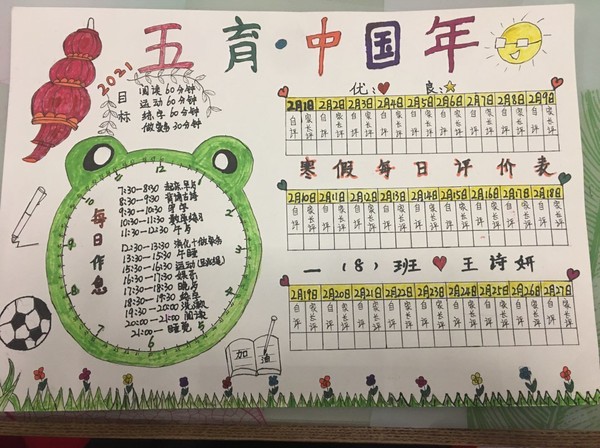 五育·中国年
2021
目标
阅读60分钟
运动60分钟
练字60分钟
做家务30分钟
优:
良:
2月1日 2月2日 2月3日 2月4日 2月5日 2月6日 2月7日 2月8日 2月9日
自评 家长评 自评 家长评 自评 家长评 自评 家长评 自评 家长评 自评 家长评 自评 家长评 自评 家长评 自评 家长评
寒假每日评价表
2月10日 2月11日 2月12日 2月13日 2月14日 2月15日 2月16日 2月17日 2月18日
自评 家长评 自评 家长评 自评 家长评 自评 家长评 自评 家长评 自评 家长评 自评 家长评 自评 家长评 自评 家长评
一(8)班 王诗妍
2月19日 2月20日 2月21日 2月22日 2月23日 2月24日 2月25日 2月26日 2月27日
自评 家长评 自评 家长评 自评 家长评 自评 家长评 自评 家长评 自评 家长评 自评 家长评 自评 家长评 自评 家长评
每日作息
7:30—8:30 起床.早点
8:30—9:30
9:30—10:30
10:30—11:30
11:30—12:30 午点
12:30—13:30 消化+做家务
13:30—15:30 午睡
15:30—16:30 运动
16:30—17:30 娱乐
17:30—18:30 晚点
18:30—19:30 练字
19:30—20:00 洗漱
20:00—21:00 阅读
21:00— 睡觉
12
1
2
3
4
5
6
7
8
9
10
11
加油